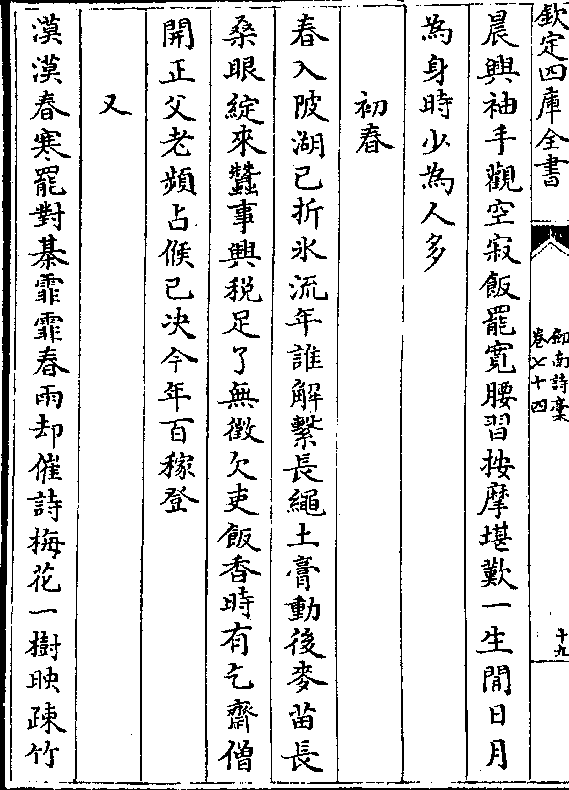 欽定四庫全書
劍南詩藁
卷七十四
十九
晨興袖手觀空寂飯罷寛腰習按摩堪歎一生閒日月
為身時少為人多
初春
春入陂湖已折氷流年誰解繫長繩土膏動後麥苗長
桑眼綻來蠶事興税足了無徴欠吏飯香時有乞齋僧
開正父老頻占候已决今年百稼登
又
漠漠春寒罷對棊霏霏春雨却催詩梅花一樹映疎竹